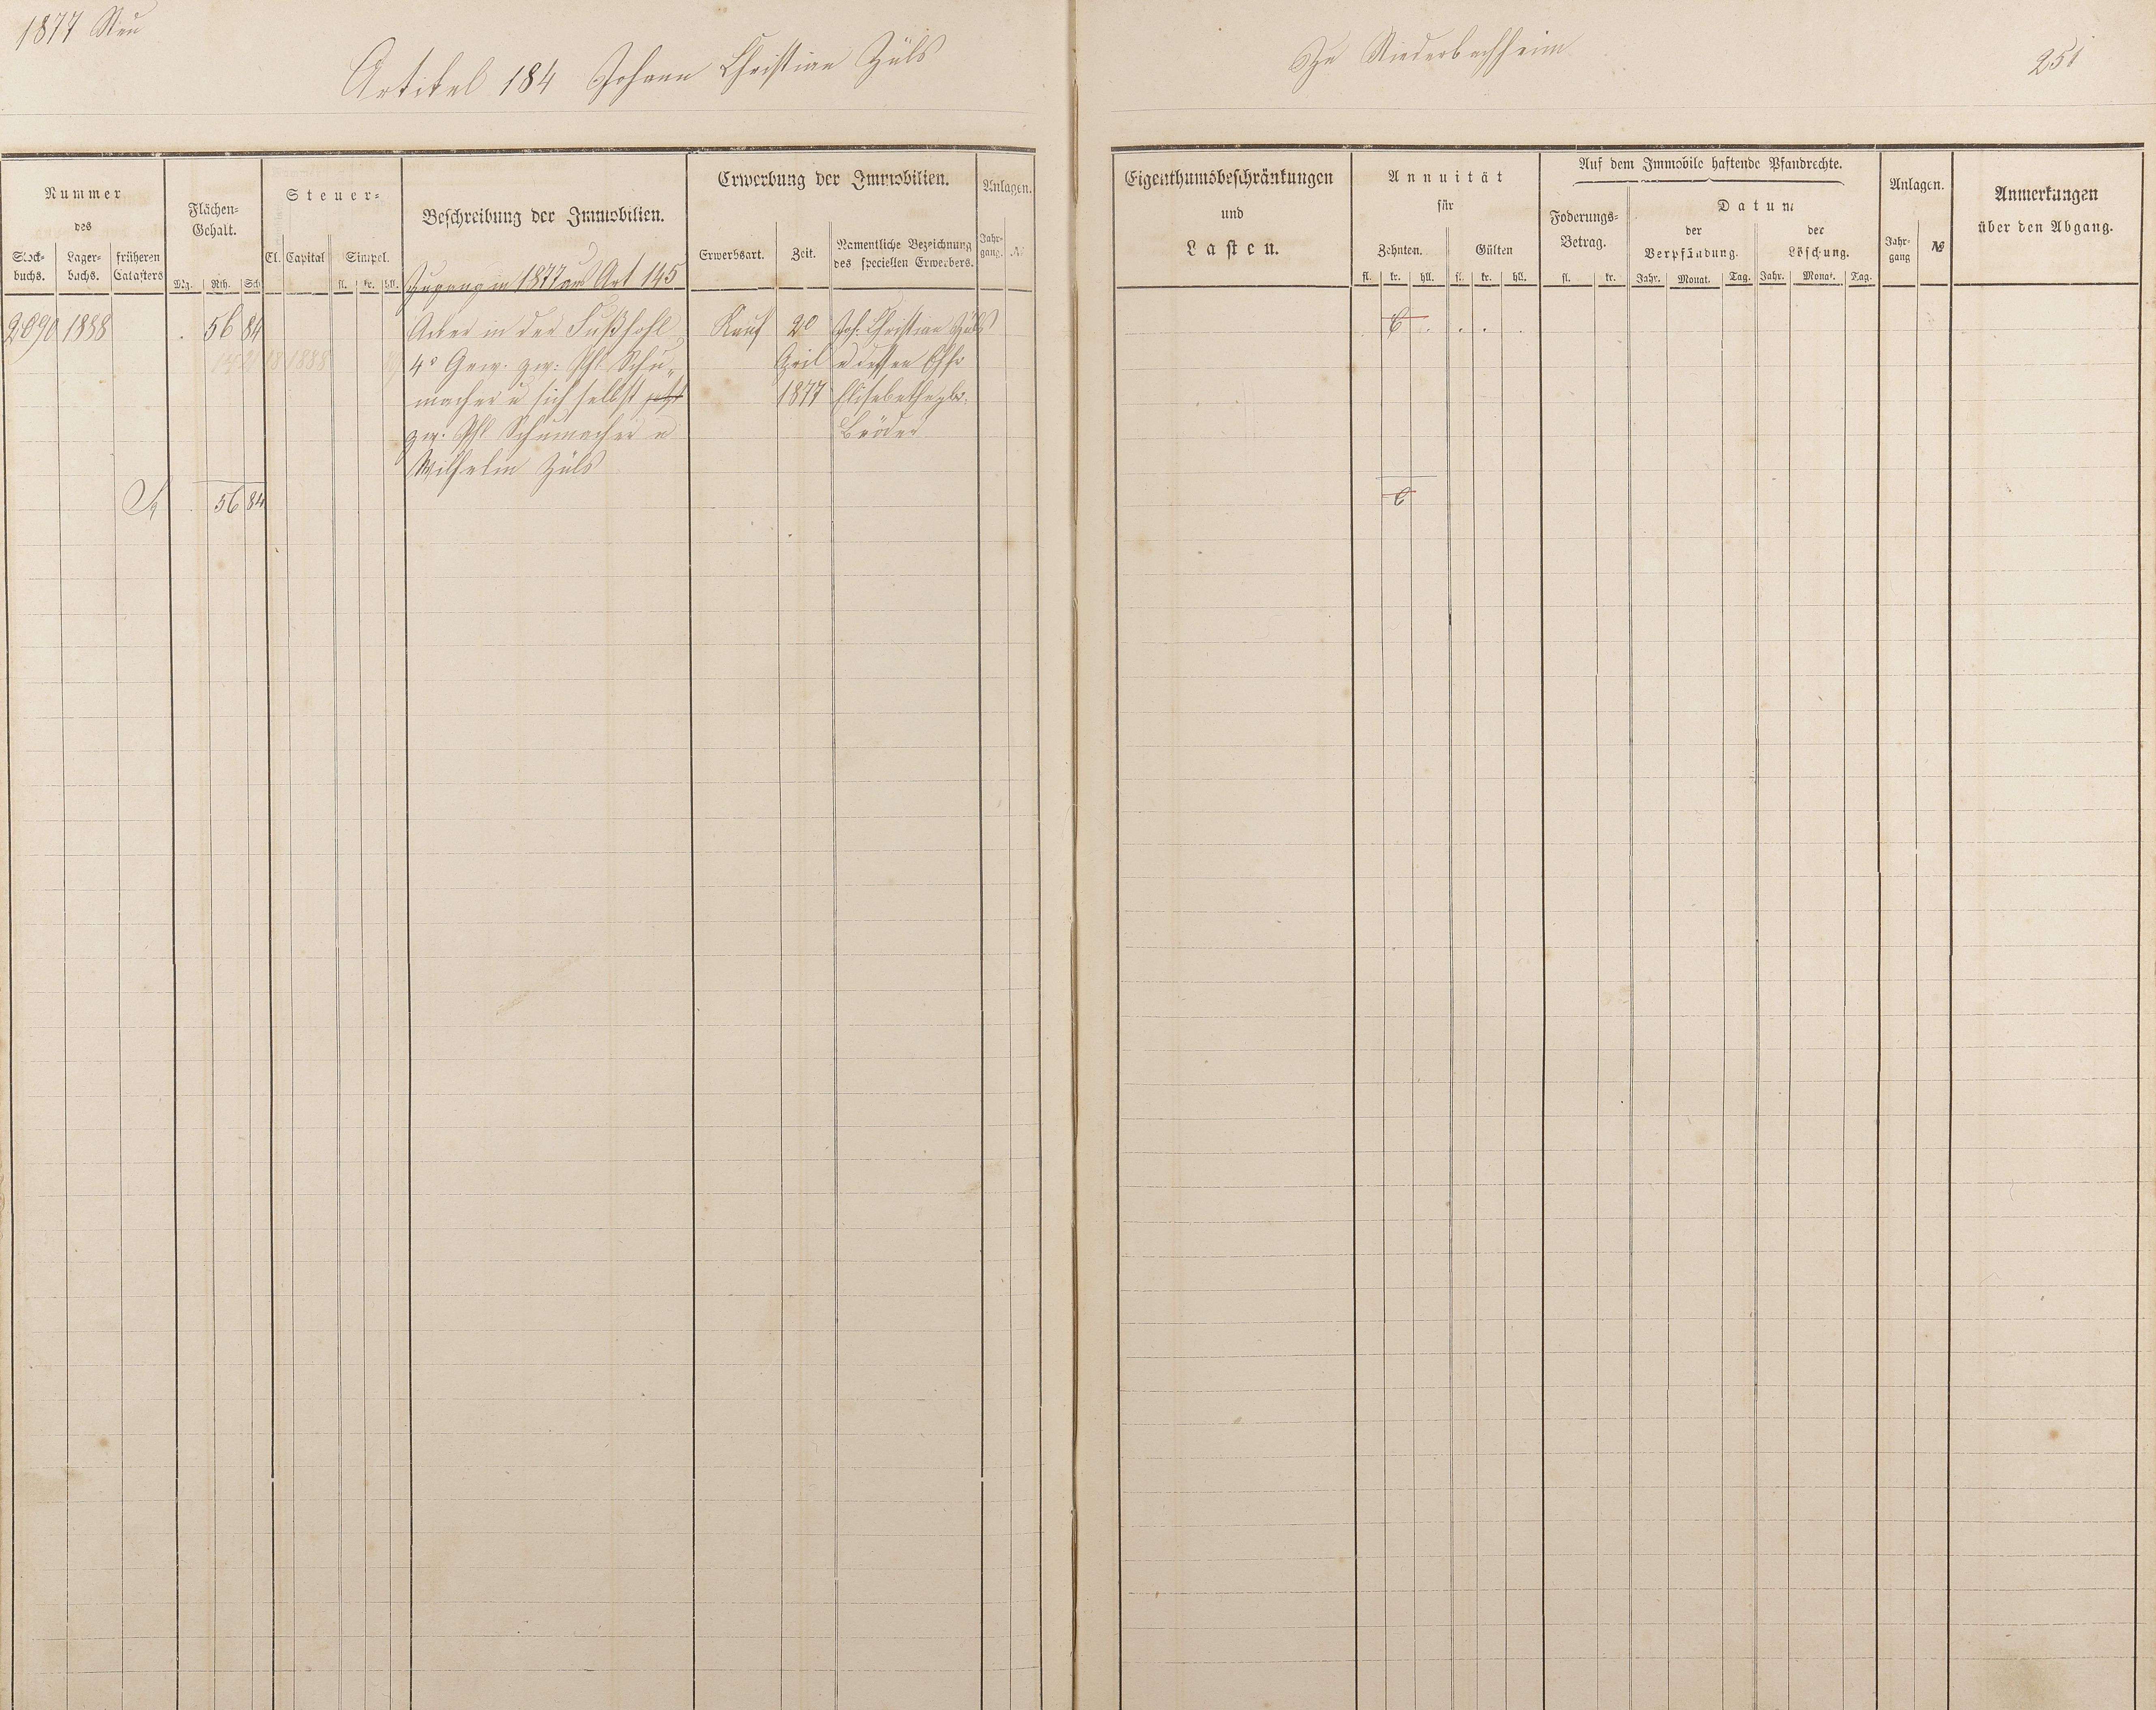 1877 Neu
Artikel 184 Johann Christian Züls
Zu Niederbachheim
251
Nummer
des
Stock-
buchs.
Lager-
buchs.
früheren
Catasters
Flächen-
Gehalt.
Mg.
Rth.
Sch
Steuer-
Cl.
Capital
Simpel.
fl.
kr.
hll.
Beschreibung der Immobilien.
Erwerbung der Immobilien.
Erwerbsart.
Zeit.
Namentliche Bezeichnung
des speciellen Erwerbers.
Anlagen.
Jahr-
gang.
№
Eigenthumsbeschränkungen
und
Lasten.
Annuität
für
Zehnten.
Gülten
fl.
kr.
hll.
fl.
kr.
hll.
Auf dem Immobile haftende Pfandrechte.
Foderungs-
Betrag.
fl.
kr.
Datum
der
Verpfändung.
der
Löschung.
Jahr.
Monat.
Tag.
Jahr.
Monat.
Tag.
Anlagen.
Jahr-
gang
№
Anmerkungen
über den Abgang.
Zugang in 1877 aus Art 145
2090 1888 . 56 84 Acker in der Fußhohl Kauf 20 Joh. Christian Züls
4r Gew. zw: Phl Schu„ April u dessen Ehfr
macher u sich selbst jetzt 1877 Elisabetha gbr.
zw. Phl Schumacher u Bröder
Wilhelm Züls
56 84